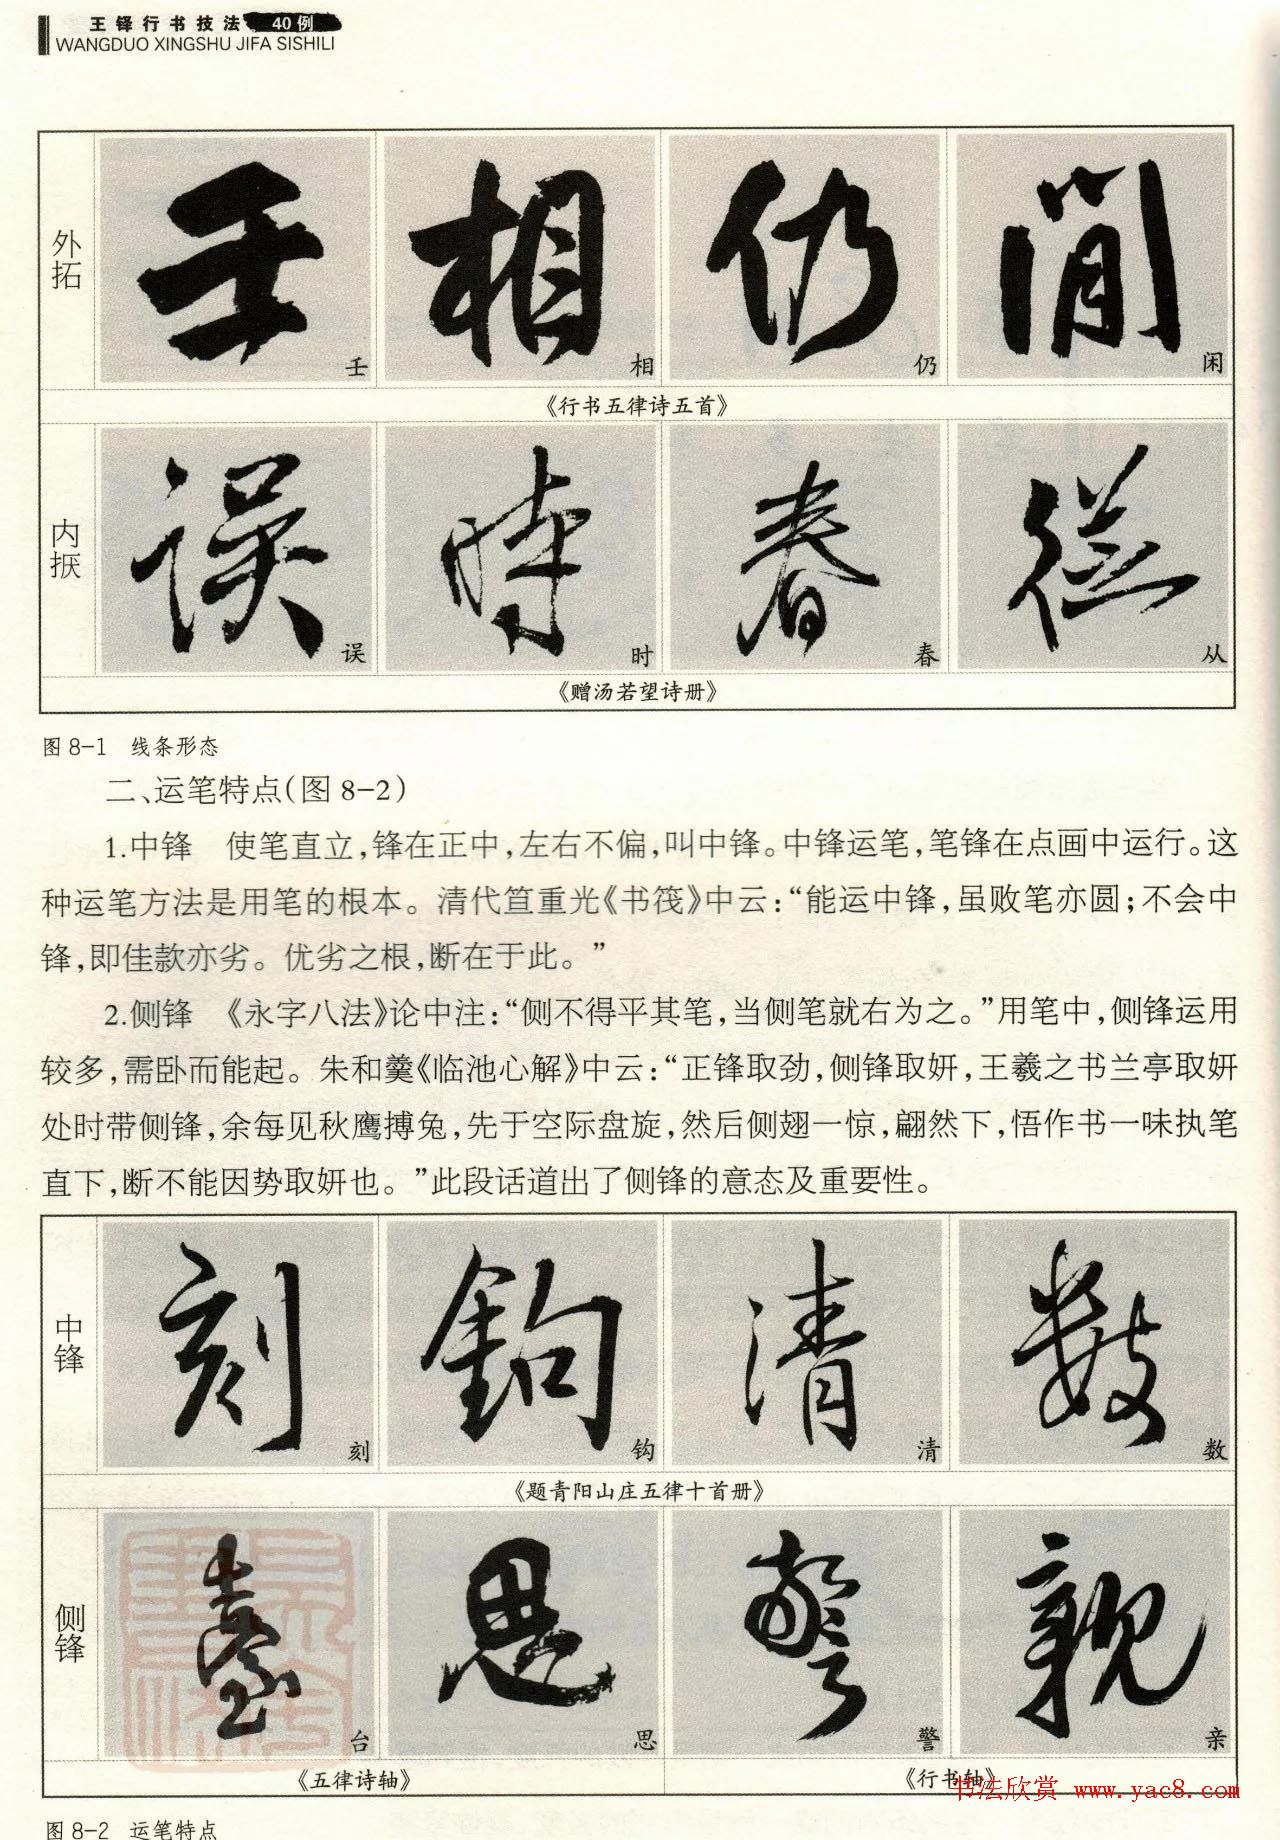 王铎行书技法 40例
WANGDUO XINGSHU JIFA SISHILI
外拓
壬 相 仍 闲
《行书五律诗五首》
内擫
误 时 春 从
《赠汤若望诗册》
图8-1 线条形态
二、运笔特点(图8-2)
1.中锋 使笔直立,锋在正中,左右不偏,叫中锋。中锋运笔,笔锋在点画中运行。这
种运笔方法是用笔的根本。清代笪重光《书筏》中云:“能运中锋,虽败笔亦圆;不会中
锋,即佳款亦劣。优劣之根,断在于此。”
2.侧锋 《永字八法》论中注:“侧不得平其笔,当侧笔就右为之。”用笔中,侧锋运用
较多,需卧而能起。朱和羹《临池心解》中云:“正锋取劲,侧锋取妍,王羲之书兰亭取妍
处时带侧锋,余每见秋鹰搏兔,先于空际盘旋,然后侧翅一惊,翩然下,悟作书一味执笔
直下,断不能因势取妍也。”此段话道出了侧锋的意态及重要性。
中锋
刻 钩 清 数
《题青阳山庄五律十首册》
侧锋
台 思 警 亲
《五律诗轴》 《行书轴》
书法欣赏 www.yac8.com
图8-2 运笔特点